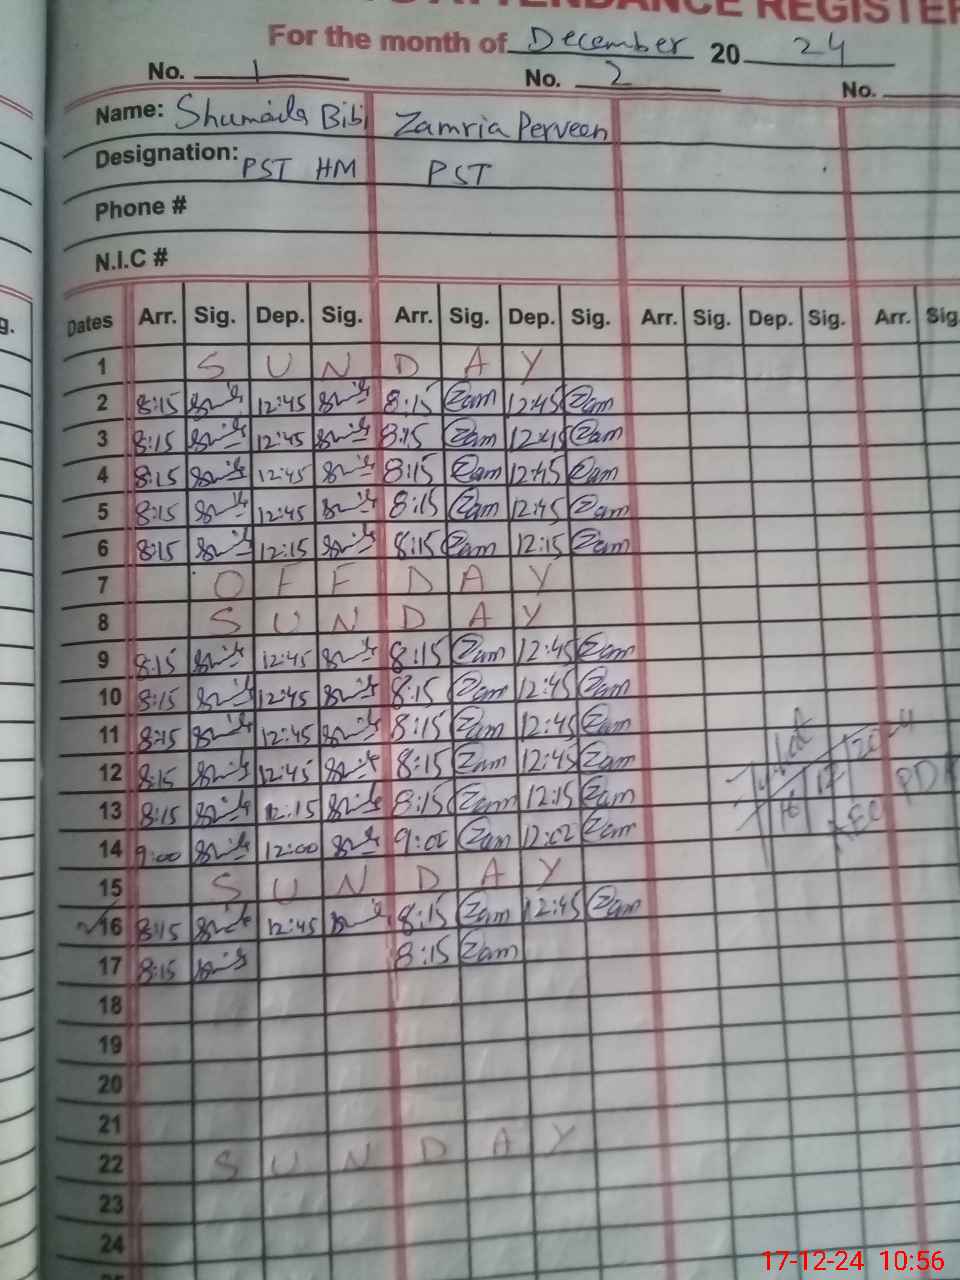 ATTENDANCE REGISTER
For the month of December 20 24
No. 1 No. 2 No.
Name: Shumaila Bibi Zamria Perveen
Designation: PST HM PST
Phone #
N.I.C #
g. Dates Arr. Sig. Dep. Sig. Arr. Sig. Dep. Sig. Arr. Sig. Dep. Sig. Arr. Sig
1 S U N D A Y
2 8:15 12:45 8:15 Zam 12:45 Zam
3 8:15 12:45 8:15 Zam 12:45 Zam
4 8:15 12:45 8:15 Zam 12:45 Zam
5 8:15 12:45 8:15 Zam 12:45 Zam
6 8:15 12:15 8:15 Zam 12:15 Zam
7 O F F D A Y
8 S U N D A Y
9 8:15 12:45 8:15 Zam 12:45 Zam
10 8:15 12:45 8:15 Zam 12:45 Zam
11 8:15 12:45 8:15 Zam 12:45 Zam
12 8:15 12:45 8:15 Zam 12:45 Zam
13 8:15 12:15 8:15 Zam 12:15 Zam
14 9:00 12:00 9:02 Zam 12:02 Zam
15 S U N D A Y
16 8:15 12:45 8:15 Zam 12:45 Zam
17 8:15 8:15 Zam
18
19
20
21
22 S U N D A Y
23
24
16/12/2024
AEO PD
17-12-24 10:56